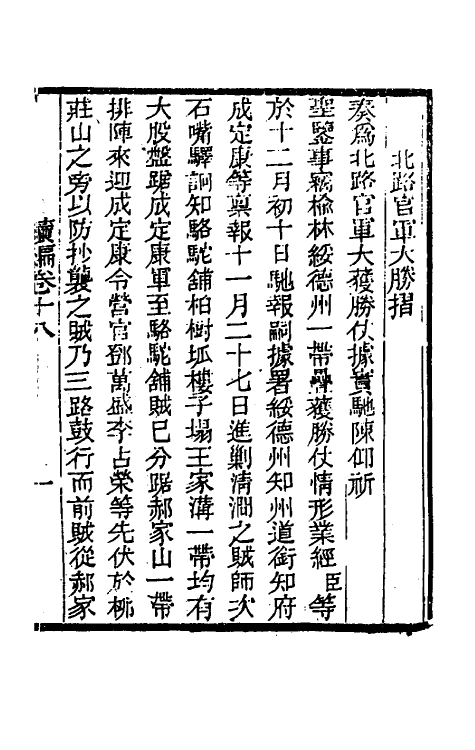 北路官軍大勝摺
奏爲北路官軍大獲勝仗據實馳陳仰祈
聖鑒事竊榆林綏德州一帶疊獲勝仗情形業經臣等
於十二月初十日馳報嗣據署綏德州知州道銜知府
成定康等稟報十一月二十七日進剿清澗之賊師次
石嘴驛詗知駱駝舖柏樹坬樓子塌王家溝一帶均有
大股盤踞成定康軍至駱駝舖賊已分踞郝家山一帶
排陣來迎成定康令營官鄧萬盛李占榮等先伏於柳
莊山之旁以防抄襲之賊乃三路鼓行而前賊從郝家
續編卷十八
一